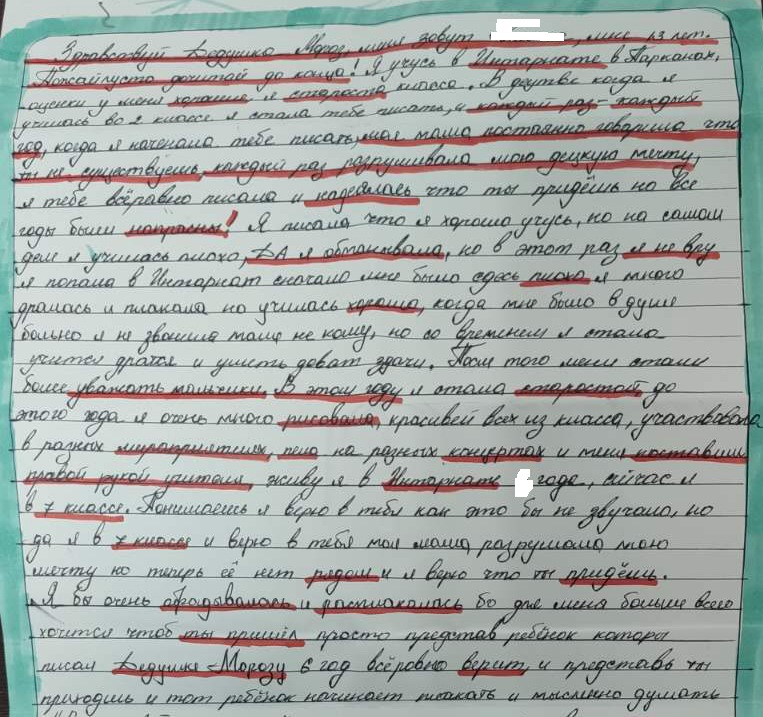 Здравствуй Дедушка Мороз, меня зовут , мне 13 лет.
Пожайлуста дочитай до конца! Я учусь в Интарнате в Парканах,
оценки у меня хорошие я староста класса. В децтве когда я
училась во 2 классе я стала тебе писать, и каждый раз- каждый
год, когда я наченала тебе писать, моя мама постоянно говорила что
ты не существуешь, каждый раз разрушивала мою децкую мечту,
я тебе всёравно писала и надеялась что ты придёшь но все
годы были напрасны! Я писала что я хорошо учусь, но на самом
деле я училась плохо, ДА я обманывала, но в этот раз я не вру
я попала в Интарнат сначало мне было сдесь плохо я много
дралась и плакала но училась хорошо, когда мне было в душе
больно я не звонила маме не кому, но со временем я стала
учится дратся и уметь доват здачи. После того меня стали
более уважать мальчики. В этом году я стала старостой, до
этого года я очень много рисовала, красивей всех из класса, участвовала
в разных мероприятиях, пела на разных концертах и меня поставили
правой рукой учителя, живу я в Интарнате года, сейчас я
в 7 классе. Понимаешь я верю в тебя как это бы не звучало, но
да я в 7 классе и верю в тебя моя мама разрушала мою
мечту но теперь её нет рядом и я верю что ты придёшь.
Я бы очень обрадывалась и расплакалась бо для меня больше всего
хочется чтоб ты пришёл просто представ ребёнок которы
писал Дедушке-Морозу 6 год всёровно верит, и представь ты
приходишь и тот ребёнок начинает плакать и мысленно думать